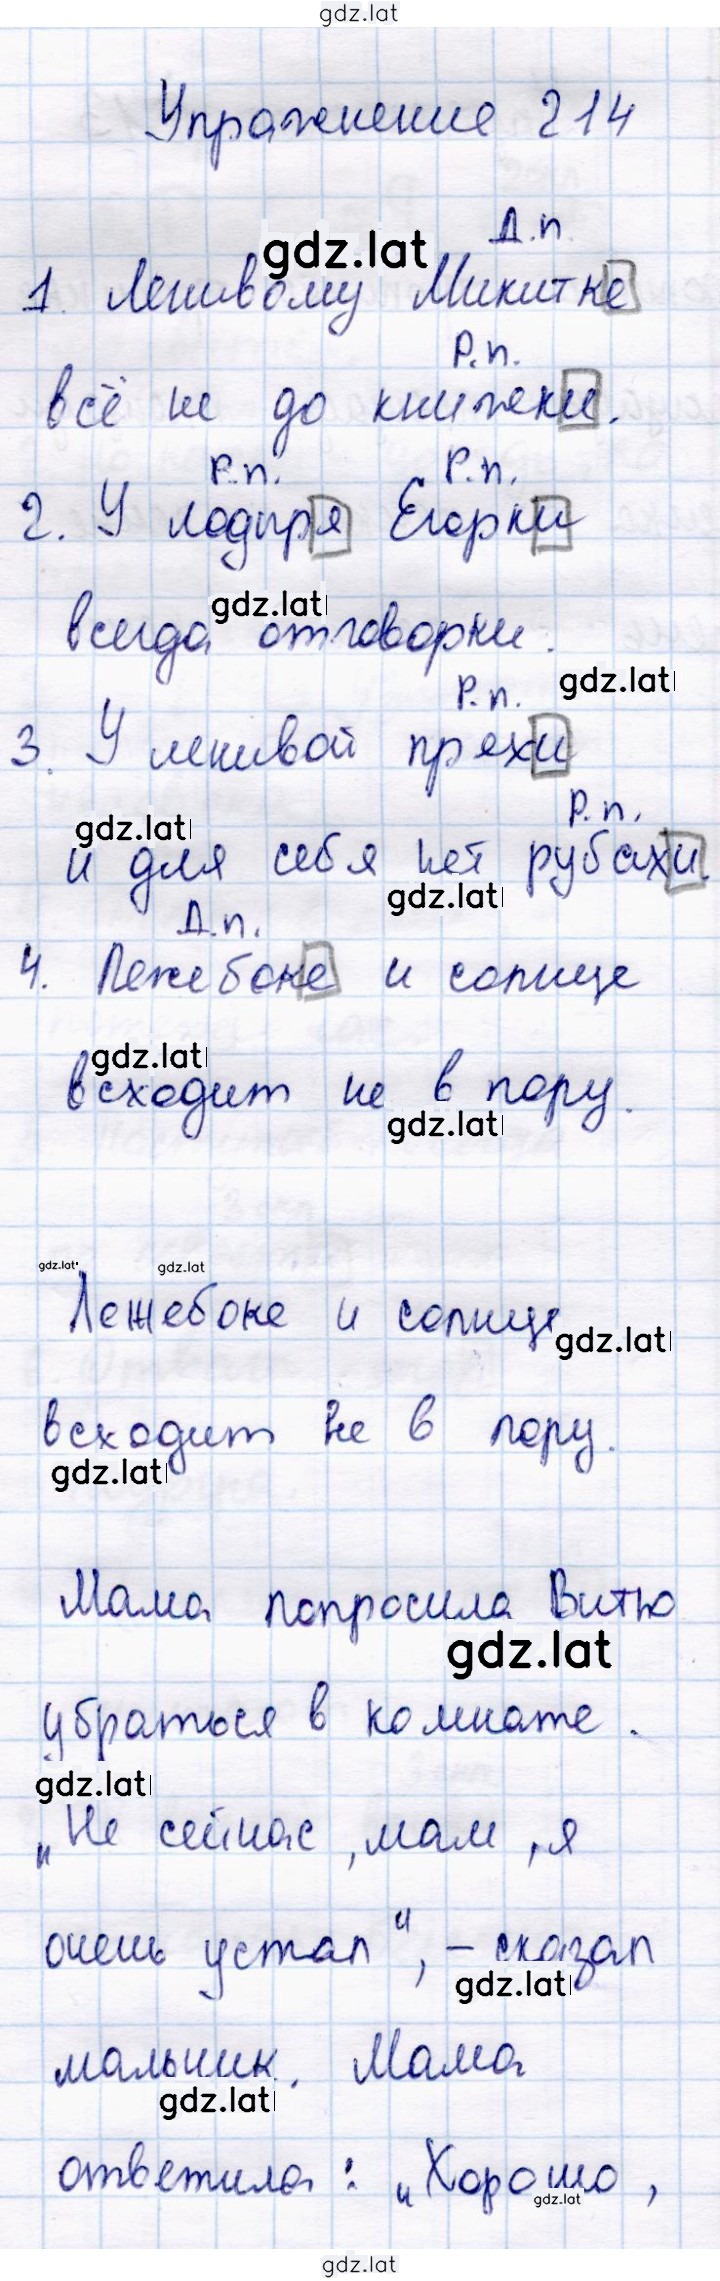 gdz.lat
Упражнение 214
gdz.lat
Д.п.
1. Ленивому Микитке
Р.п.
всё не до книжки.
Р.п. Р.п.
2. У лодыря Егорки
gdz.lat
всегда отговорки.
gdz.lat
Р.п.
3. У ленивой пряхи
gdz.lat
Р.п.
и для себя нет рубахи.
gdz.lat
Д.п.
4. Лежебоке и солнце
gdz.lat
всходит не в пору.
gdz.lat
gdz.lat gdz.lat
Лежебоке и солнце
gdz.lat
всходит не в пору.
gdz.lat
Мама попросила Витю
gdz.lat
убраться в комнате.
gdz.lat
„Не сейчас, мам, я
очень устал“, – сказал
gdz.lat
мальчик. Мама
gdz.lat
ответила: „Хорошо,
gdz.lat
gdz.lat